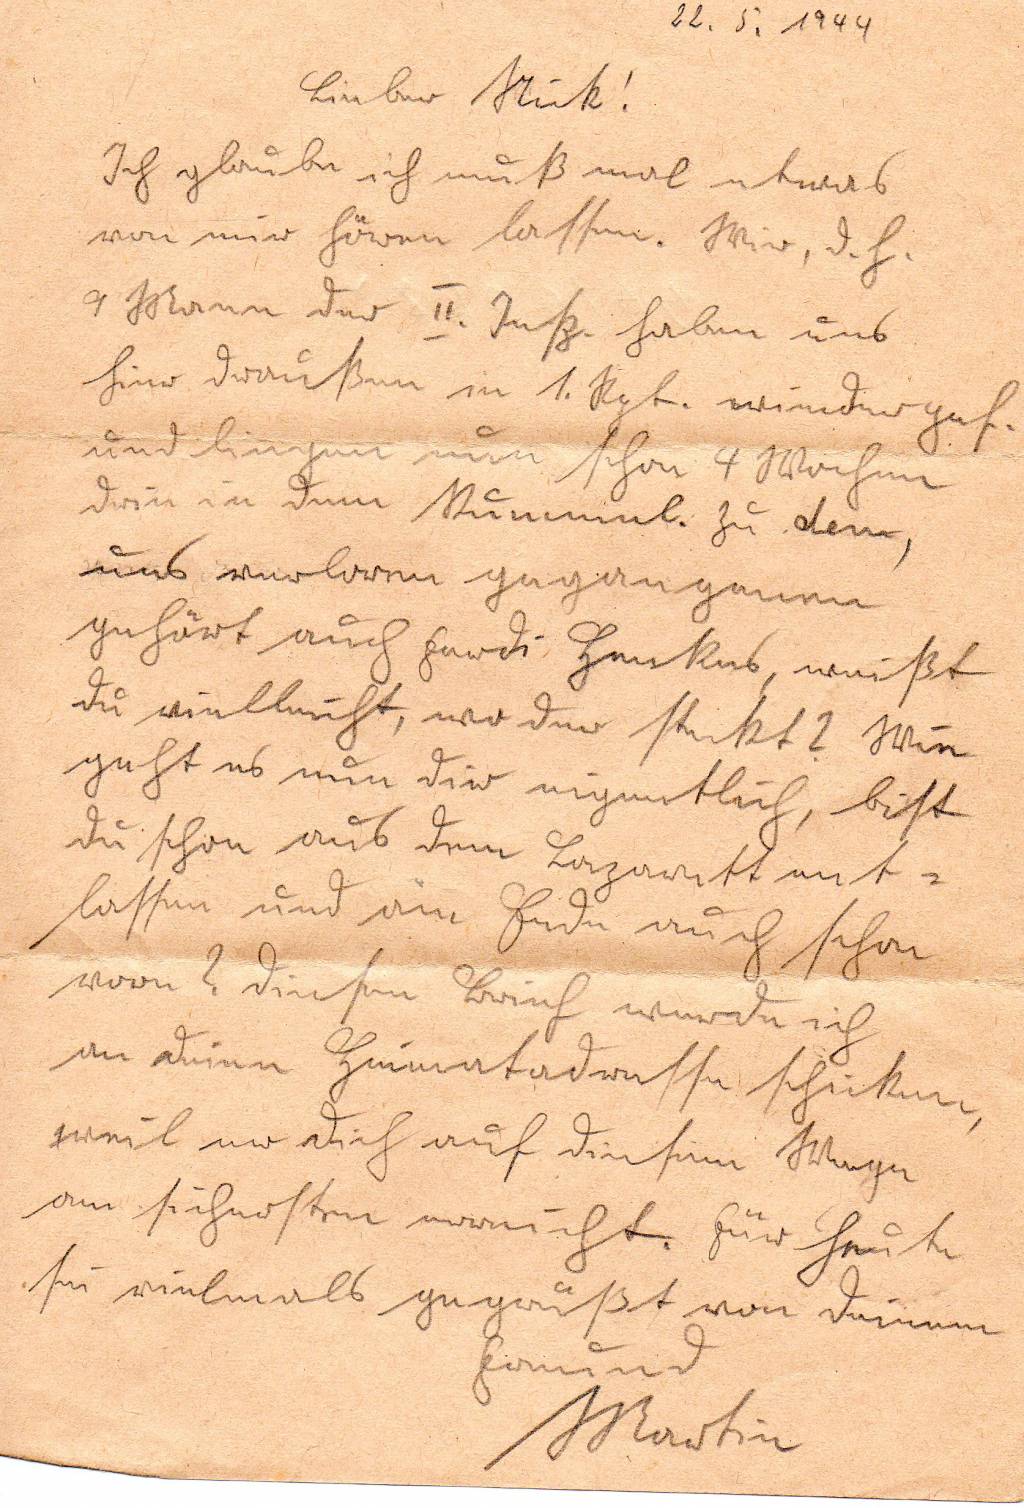 22. 5. 1944
Lieber Nick!
Ich glaube ich muß mal etwas
von mir hören lassen. Wir, d. h.
9 Mann der II. Insp. haben uns
hier draußen in 1. Kpt. wiedergef.
und liegen nun schon 4 Wochen
drin in dem Rummel. Zu dem,
uns verloren gegangenen
gehört auch Ferdi Henkes, weißt
du vielleicht, wo der steckt? Wie
geht es nun dir eigentlich, bist
du schon aus dem Lazarett ent=
lassen und am Ende auch schon
vorn? Diesen Brief werde ich
an deine Heimatadresse schicken,
weil er dich auf diesem Wege
am sichersten erreicht. Für heute
sei vielmals gegrüßt von deinem
Freund
Martin